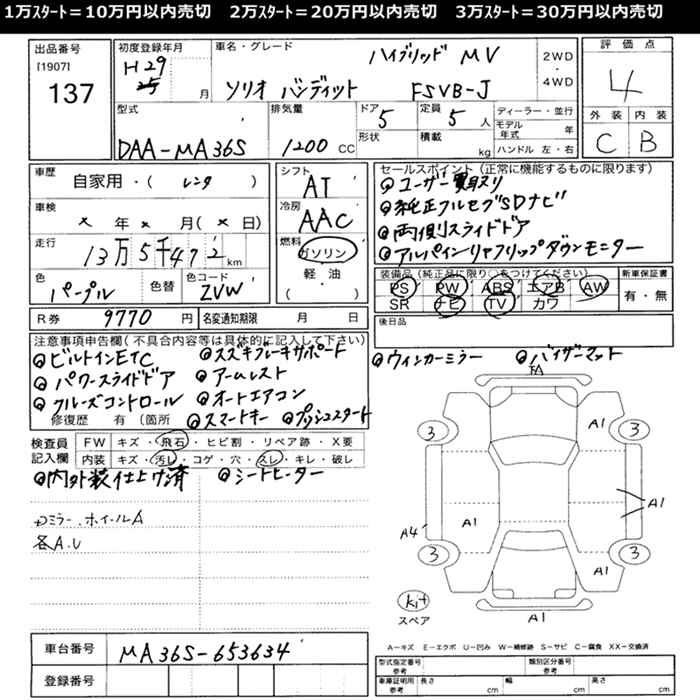 1万ｽﾀｰﾄ＝10万円以内売切 2万ｽﾀｰﾄ＝20万円以内売切 3万ｽﾀｰﾄ＝30万円以内売切
出品番号
[1907]
137
初度登録年月
H29
25
月
車名・グレード
ハイブリッド MV
ソリオ バンディット FSVB-J
2WD
・
4WD
評価点
4
外装 内装
C B
型式
DAA-MA36S
排気量
1200 CC
ドア
5
形状
定員
5 人
積載
kg
ディーラー・並行
モデル年式 年
ハンドル 左・右
車歴
自家用・( レンタ )
車検
× 年 × 月(× 日)
走行
13万5千472 km
色
パープル
色替
色コード
ZVW
シフト
AT
冷房
AAC
燃料
ガソリン
・
軽油
( )
R券 9770 円
名変通知期限 月 日
セールスポイント(正常に機能するものに限ります)
◎ユーザー買取り
◎純正フルセグSDナビ
◎両側スライドドア
◎アルパインリヤフリップダウンモニター
装備品(純正品に限り○をつけてください)
PS PW ABS エアB AW
SR ナビ TV カワ
新車保証書
有・無
後日品
注意事項申告欄(不具合内容等は具体的に記入して下さい)
◎ビルトインETC ◎スズキブレーキサポート
◎パワースライドドア ◎アームレスト
◎クルーズコントロール ◎オートエアコン
修復歴 有 (箇所 ◎スマートキー ◎プッシュスタート
◎ウィンカーミラー ◎バイザーマット
検査員記入欄
FW キズ・飛石・ヒビ割・リペア跡・X要
内装 キズ・汚レ・コゲ・穴・スレ・キレ・破レ
◎内外装仕上げ済 ◎シートヒーター
ミラー、ホイールA
各A.U
FA
A1
3 3
A1
A4 A1
3 3
A1
kit
スペア
A1
A－キズ E－エクボ U－凹み W－補修跡 S－サビ C－腐食 XX－交換済
車台番号 MA36S-653634
登録番号
型式指定番号 参考
類別区分番号 参考
車庫証明用 参考 長さ cm 幅 cm 高さ cm